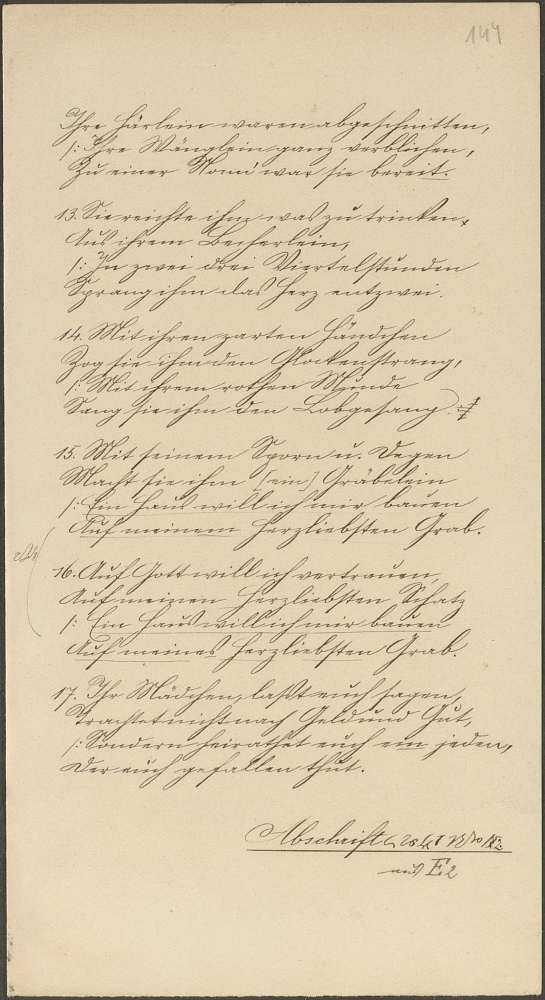 144
Ihre Härlein waren abgeschnitten,
/: Ihre Wänglein ganz verblichen,
Zu einer Nonn' war sie bereit.
13. Sie reichte ihm was zu trinken,
Aus ihrem Becherlein,
/: In zwei drei Viertelstunden
Sprang ihm das Herz entzwei.
14. Mit ihren zarten Händchen
Zog sie ihm den Glockenstrang,
/: Mit ihrem rothen Munde
Sang sie ihm den Lobgesang. :/
15. Mit seinem Sporn u. Degen
Macht sie ihm [ein] Gräbelein
/: Ein Haus will ich mir bauen
Auf meinem herzliebsten Grab.
16. Auf Gott will ich vertrauen,
Auf meinen herzliebsten Schatz
/: Ein Haus will ich mir bauen
Auf meines herzliebsten Grab.
17. Ihr Mädchen, laßt euch sagen,
Trachtet nicht nach Geld und Gut,
/: Sondern heirathet euch ein jeden,
Der euch gefallen thut.
Abschrift
aus E2